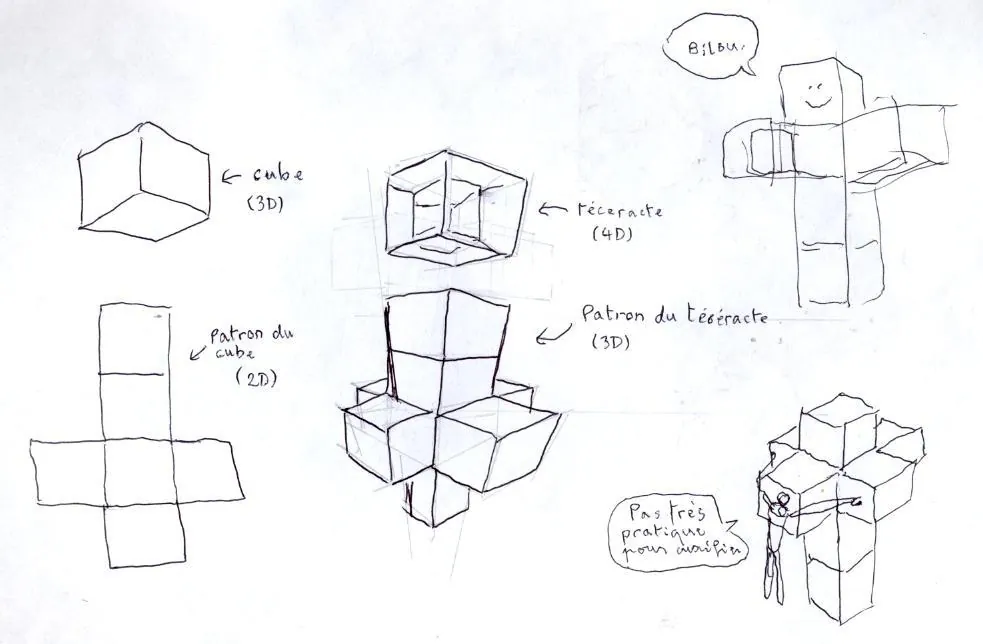 Bilou.
← cube
(3D)
← téceracte
(4D)
Patron du téséracte
(3D)
Patron du
cube
(2D)
Pas très
pratique
pour crucifier